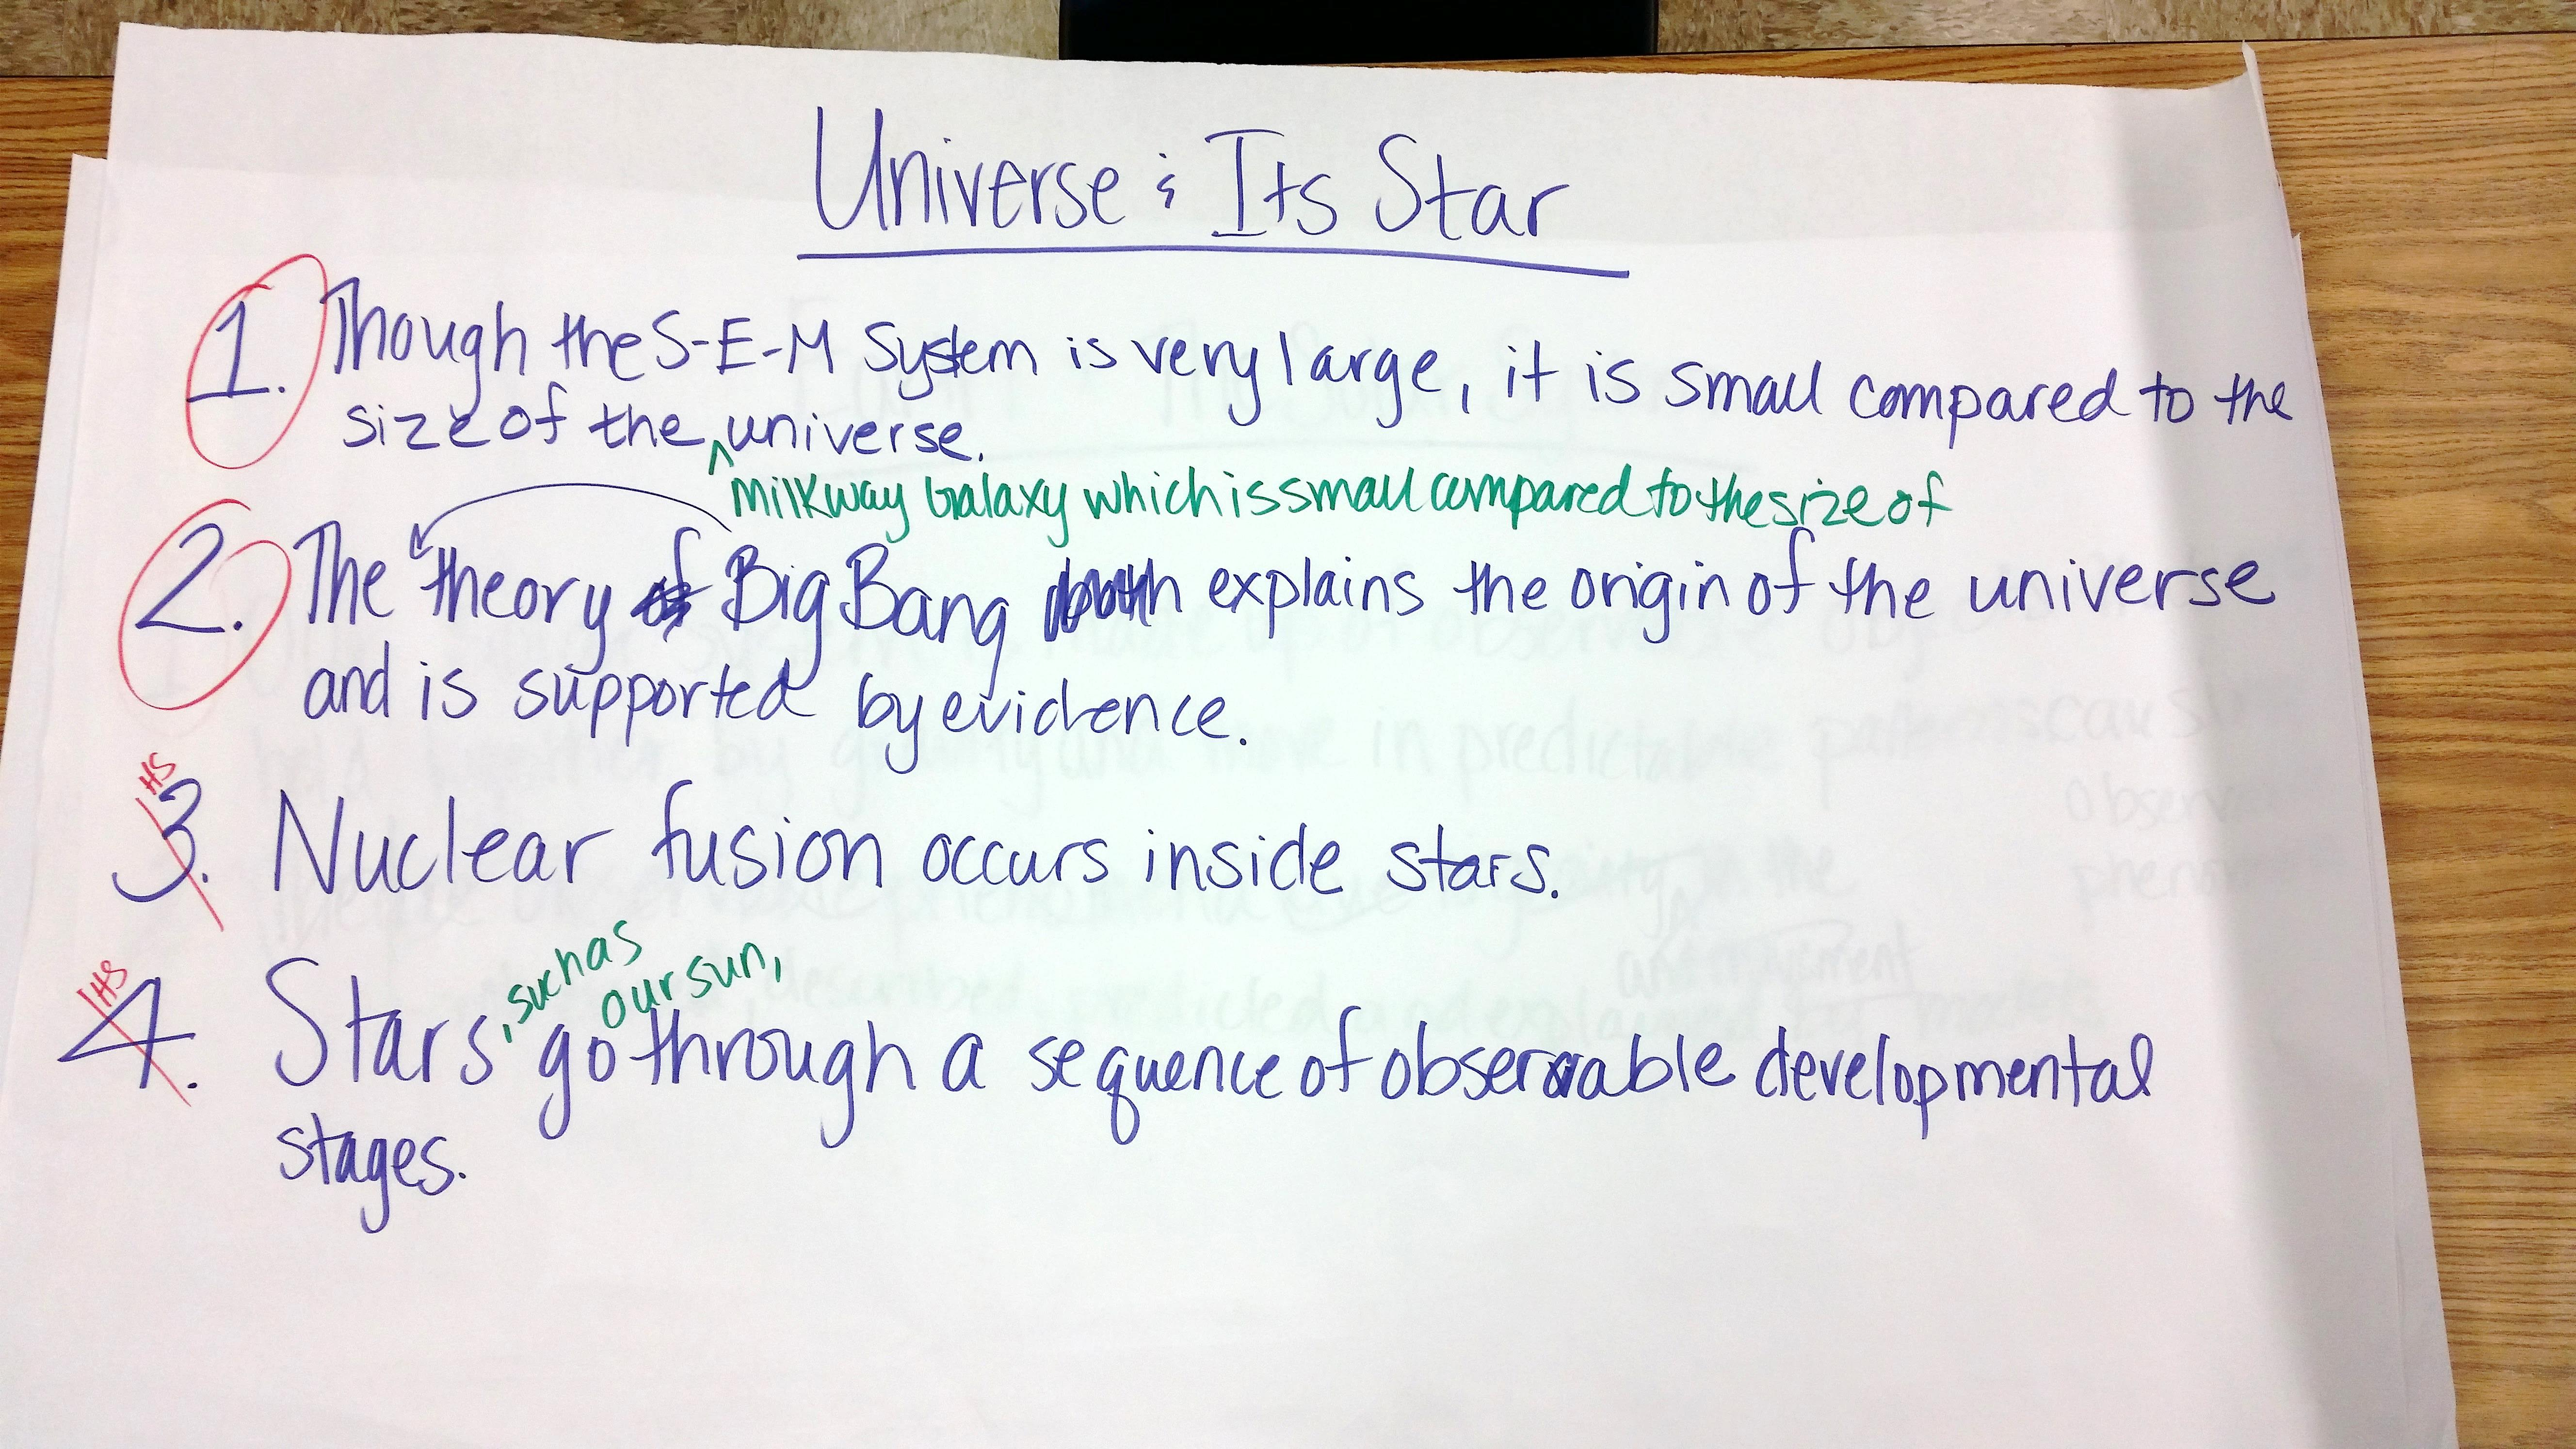 Universe & Its Star
1. Though the S-E-M System is very large, it is small compared to the
size of the ^ universe.
Milkway Galaxy which is small compared to the size of
2. The theory of Big Bang explains the origin of the universe
and is supported by evidence.
HS
3. Nuclear fusion occurs inside stars.
, such as
our sun,
HS
4. Stars go through a sequence of observable developmental
stages.